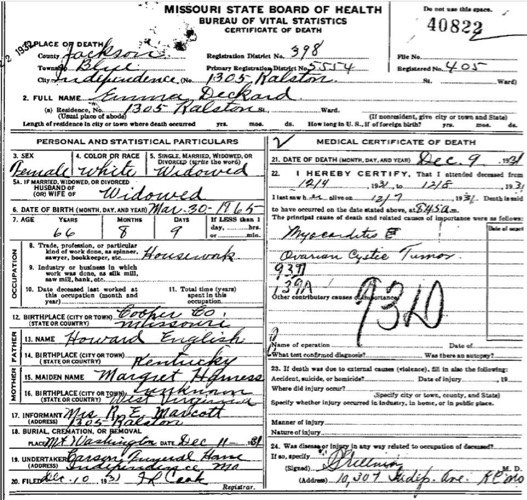 MISSOURI STATE BOARD OF HEALTH
BUREAU OF VITAL STATISTICS
CERTIFICATE OF DEATH
Do not use this space.
40822
1. PLACE OF DEATH
County Jackson
Registration District No. 398
File No.
Township Blue
Primary Registration District No. 5554
Registered No. 405
City Independence (No. 1305 Ralston St. Ward)
2. FULL NAME Emma Deckard
(a) Residence, No. 1305 Ralston St. Ward.
(Usual place of abode) (If nonresident, give city or town and State)
Length of residence in city or town where death occurred yrs. mos. ds. How long in U. S., if of foreign birth? yrs. mos. ds.
PERSONAL AND STATISTICAL PARTICULARS
3. SEX Female
4. COLOR OR RACE White
5. SINGLE, MARRIED, WIDOWED, OR DIVORCED (write the word) Widowed
5A. IF MARRIED, WIDOWED, OR DIVORCED
HUSBAND OF (OR) WIFE OF Widowed
6. DATE OF BIRTH (MONTH, DAY, AND YEAR) Mar-30-1865
7. AGE YEARS 66 MONTHS 8 DAYS 9 If LESS than 1 day, hrs. or min.
OCCUPATION
8. Trade, profession, or particular kind of work done, as spinner, sawyer, bookkeeper, etc. Housework
9. Industry or business in which work was done, as silk mill, saw mill, bank, etc.
10. Date deceased last worked at this occupation (month and year)
11. Total time (years) spent in this occupation
12. BIRTHPLACE (CITY OR TOWN) Cooper Co.
(STATE OR COUNTRY) Missouri
FATHER
13. NAME Howard English
14. BIRTHPLACE (CITY OR TOWN)
(STATE OR COUNTRY) Kentucky
MOTHER
15. MAIDEN NAME Margret Harness
16. BIRTHPLACE (CITY OR TOWN) Unknown
(STATE OR COUNTRY) West Virginia
17. INFORMANT Mrs R. E. Marcott
(ADDRESS) 1305 Ralston
18. BURIAL, CREMATION, OR REMOVAL
PLACE Mt Washington DATE Dec 11 1931
19. UNDERTAKER Carson Funeral Home
(ADDRESS) Independence Mo
20. FILED Dec 10 1931 F L Cook
Registrar.
MEDICAL CERTIFICATE OF DEATH
21. DATE OF DEATH (MONTH, DAY, AND YEAR) Dec 9 1931
22. I HEREBY CERTIFY, That I attended deceased from
1931, to 12/8, 1931
I last saw h alive on 12/7, 1931 Death is said
to have occurred on the date stated above, at 845a m.
The principal cause of death and related causes of importance were as follows:
Date of onset
Myocarditis
Ovarian Cystic Tumor
139A
Other contributory causes of importance:
Name of operation Date of
What test confirmed diagnosis? Was there an autopsy?
23. If death was due to external causes (violence), fill in also the following:
Accident, suicide, or homicide? Date of injury , 19
Where did injury occur?
(Specify city or town, county, and State)
Specify whether injury occurred in industry, in home, or in public place.
Manner of injury
Nature of injury
24. Was disease or injury in any way related to occupation of deceased?
If so, specify
(Signed) M. D.
(Address) 10,307 Indep. Ave. K C Mo